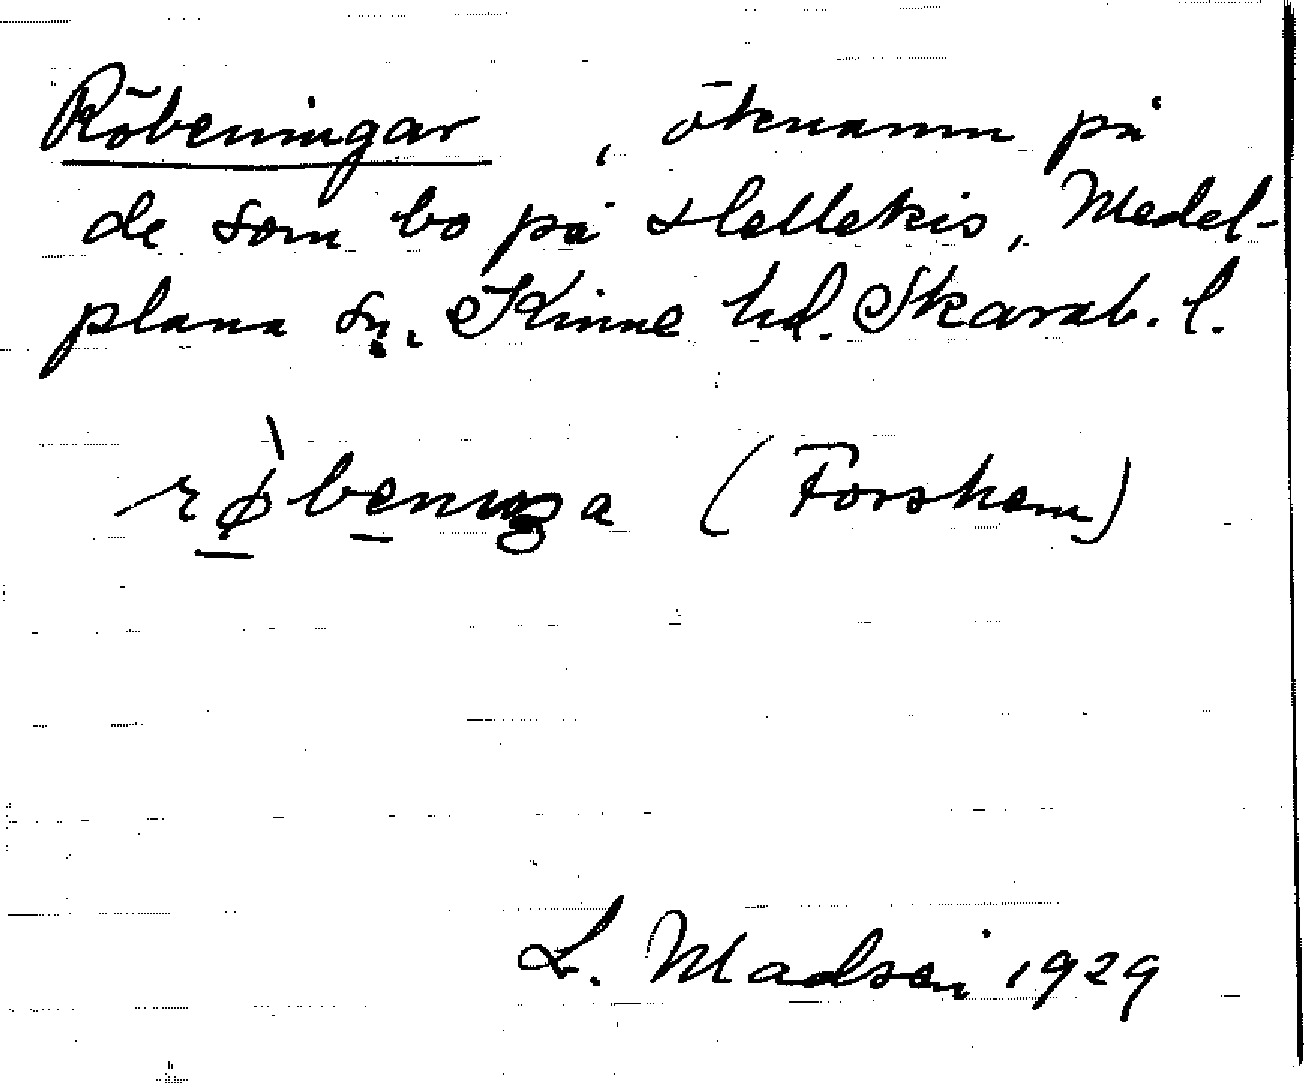 Röbeningar, öknamn på
de som bo på Hellekis, Medel-
plana sn. Kinne hd. Skarab. l.
(Forshem)
L. Madsen 1929